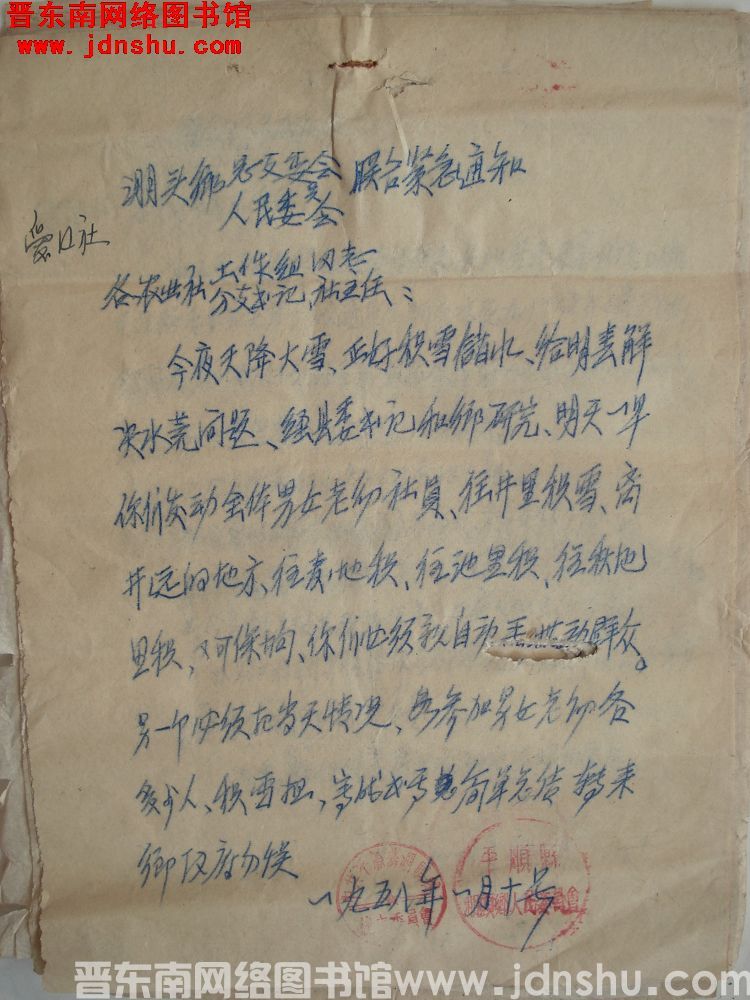 晋东南网络图书馆
www.jdnshu.com
湖头乡总支委会 联合紧急通知
人民委员会
窑口社
各农业社工作组同志
分支书记,社主任:
今夜天降大雪、正好积雪储水、给明春解
决水荒问题、经县委书记和乡研究、明天一早
你们发动全体男女老幼社員、往井里积雪、离
井远的地方、往麦地积、往池里积、往秋地
里积、又可保墒、你们必须亲自动手 带动群众。
另一个必须把当天情况、即参加男女老幼各
多少人、积雪担、写成书面简单总结转来
乡政府勿误
一九五八年一月十号
平順縣
鄉人民委員會
晋东南网络图书馆www.jdnshu.com